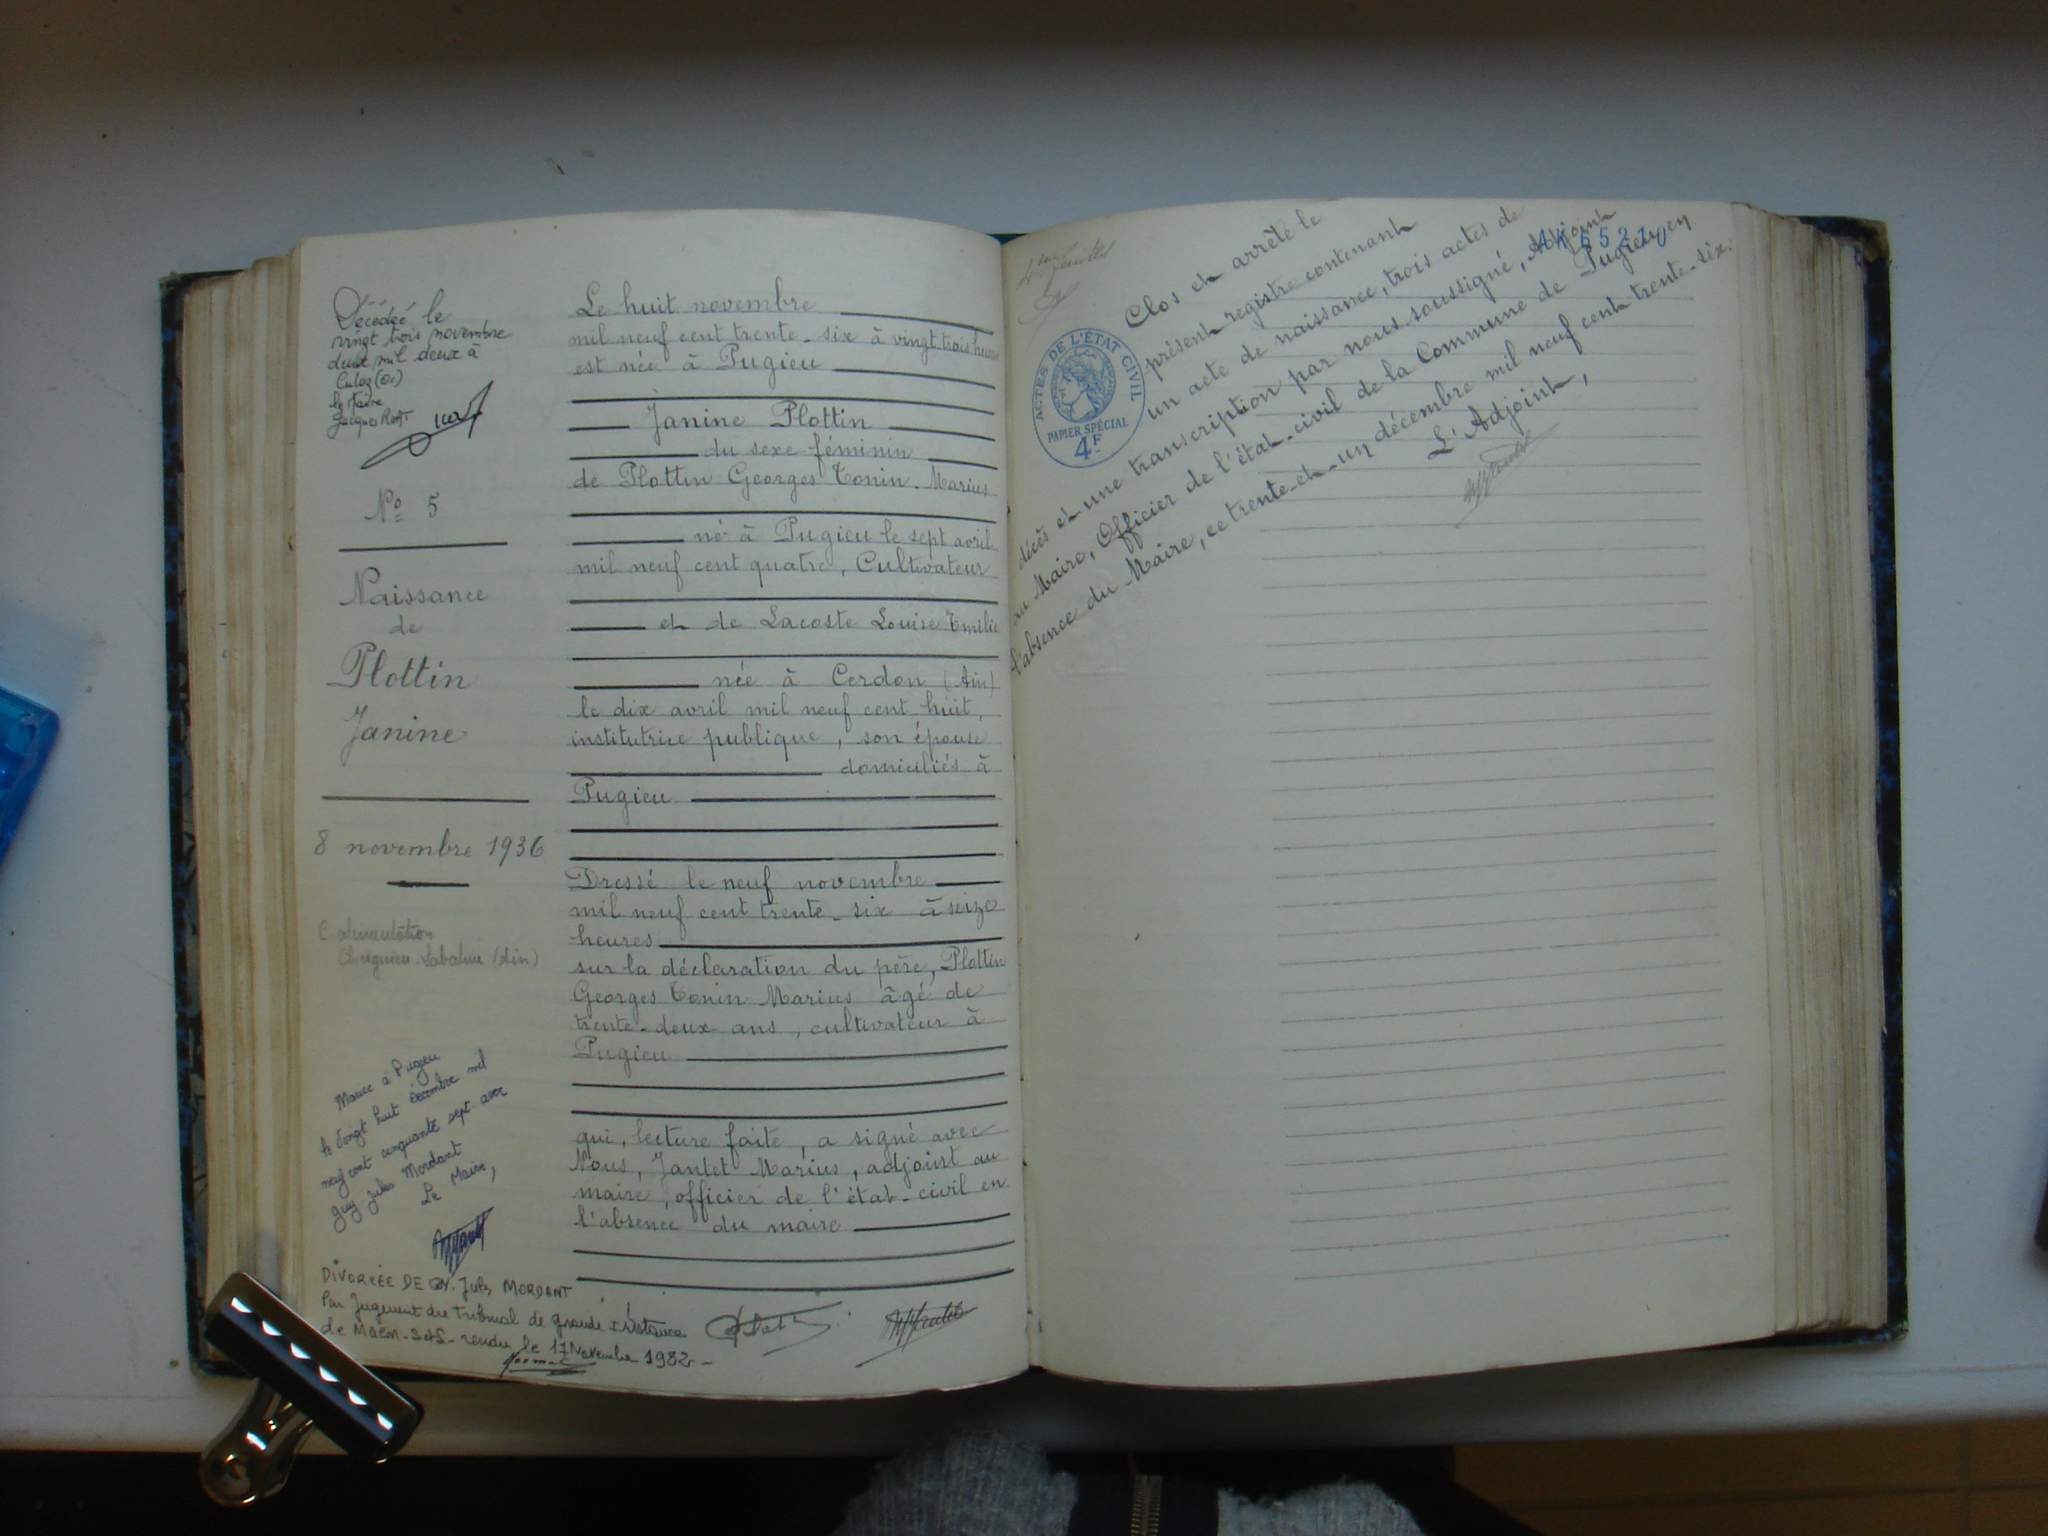 Décédée le
vingt trois novembre
deux mil deux à
Culoz (01)
le Maire
Jacques
No 5
Naissance
de
Plottin
Janine
8 novembre 1936
Mariée à Pugieu
le vingt huit décembre mil
neuf cent cinquante sept avec
Guy Jules Mordant
Le Maire,
DIVORCÉE DE GUY. Jules MORDANT
Par Jugement du Tribunal de grande Instance
rendu le 17 Novembre 1982 -
Le huit novembre
mil neuf cent trente-six à vingt-trois heures
est née à Pugieu
Janine Plottin
du sexe féminin
de Plottin Georges Tonin Marius
né à Pugieu le sept avril
mil neuf cent quatre, Cultivateur
et de Lacoste Louise Emilie
née à Cerdon (Ain)
le dix avril mil neuf cent huit,
institutrice publique, son épouse
domiciliés à
Pugieu
Dressé le neuf novembre
mil neuf cent trente-six à seize
heures
sur la déclaration du père, Plottin
Georges Tonin Marius âgé de
trente-deux ans, cultivateur à
Pugieu
qui, lecture faite, a signé avec
Nous, Jantet Marius, adjoint au
maire, officier de l'état-civil en
l'absence du maire
AK 65210
ACTES DE L'ÉTAT CIVIL
PAPIER SPÉCIAL
4F
Clos et arrêté le
présent registre contenant
un acte de naissance, trois actes de
décès et une transcription par nous soussigné, Adjoint
au Maire, Officier de l'état-civil de la Commune de Pugieu en
l'absence du Maire, ce trente-et-un décembre mil neuf cent trente-six.
L'Adjoint,